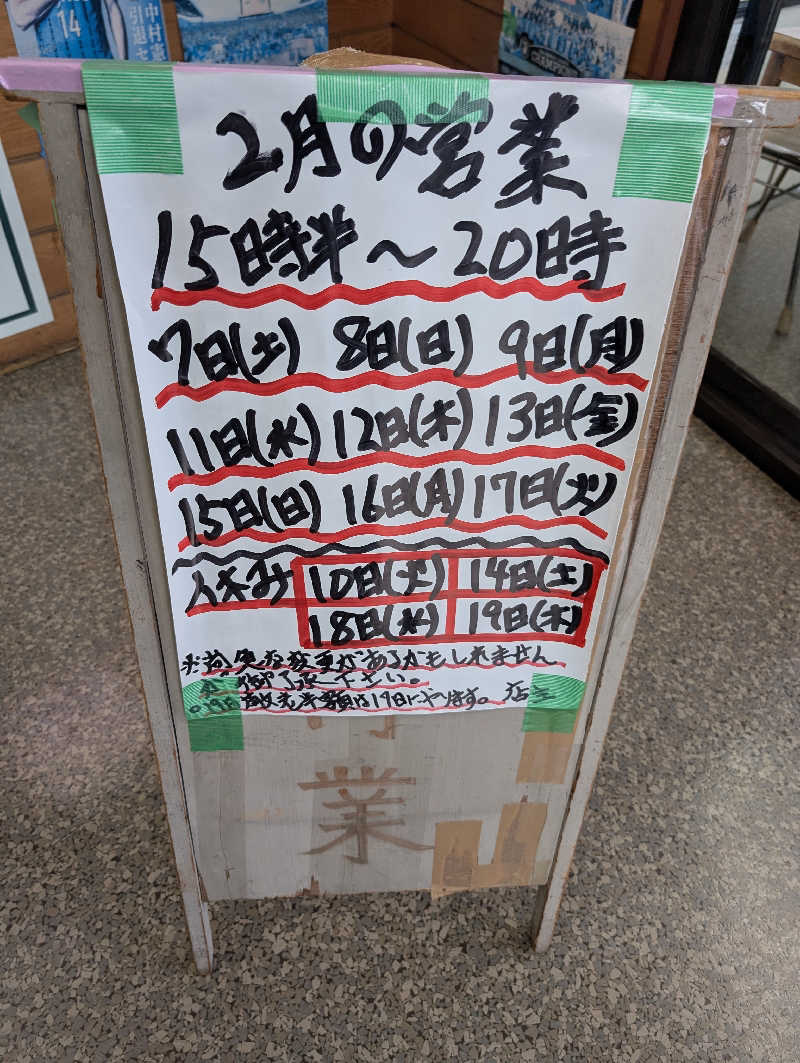 14
中村憲
引退さ
CHAMPIONS
2月の営業
15時半〜20時
7日(土) 8日(日) 9日(月)
11日(水) 12日(木) 13日(金)
15日(日) 16日(月) 17日(火)
休み 10日(火) 14日(土)
18日(水) 19日(木)
があるかもしれません
御了承下さい。
半額は17日にやります。店主
業